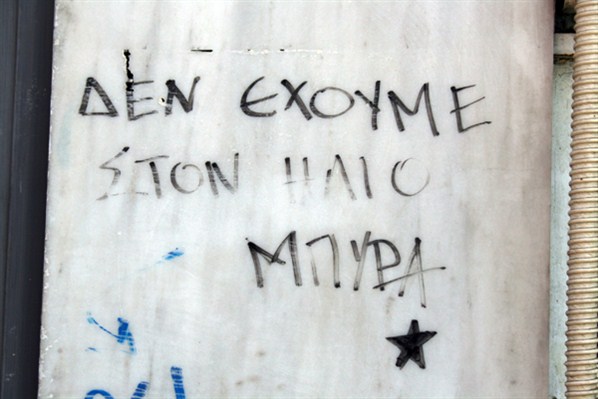 ΔΕΝ ΕΧΟΥΜΕ
ΣΤΟΝ ΗΛΙΟ
ΜΠΥΡΑ